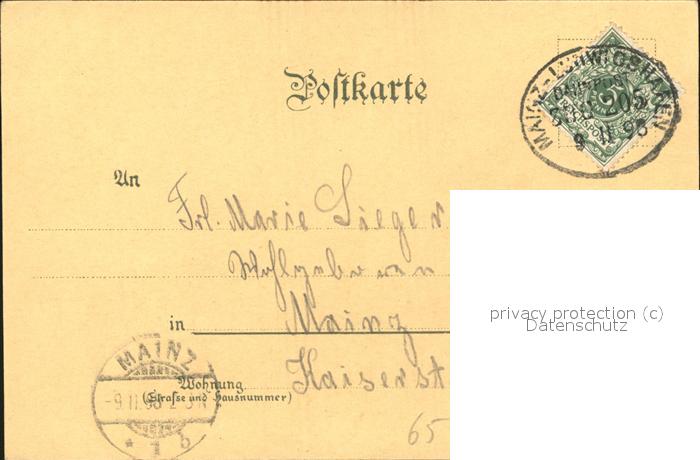 Postkarte
MAINZ-LUDWIGSHAFEN
BAHNPOST
205
9 11 98
An
Frl. Marie Sieger
Wohlgeboren
in Mainz
Kaiserst
MAINZ
-9.11.98 2-3 N
* 1 b
Wohnung
(Strasse und Hausnummer)
65
privacy protection (c)
Datenschutz